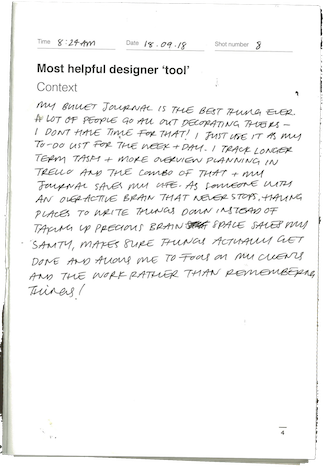 Time 8:24AM Date 18.09.18 Shot number 8
Most helpful designer 'tool'
Context
MY BULLET JOURNAL IS THE BEST THING EVER
A LOT OF PEOPLE GO ALL OUT DECORATING THEIRS -
I DONT HAVE TIME FOR THAT! I JUST USE IT AS MY
TO-DO LIST FOR THE WEEK + DAY. I TRACK LONGER
TERM TASKS + MORE OVERVIEW PLANNING IN
TRELLO AND THE COMBO OF THAT + MY
JOURNAL SAVES MY LIFE. AS SOMEONE WITH
AN OVERACTIVE BRAIN THAT NEVER STOPS, HAVING
PLACES TO WRITE THINGS DOWN INSTEAD OF
TAKING UP PRECIOUS BRAIN SPACE SAVES MY
SANITY, MAKES SURE THINGS ACTUALLY GET
DONE AND ALLOWS ME TO FOCUS ON MY CLIENTS
AND THE WORK RATHER THAN REMEMBERING
THINGS!
4